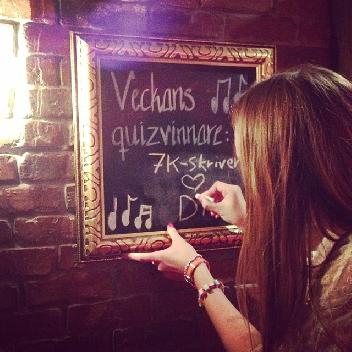 Veckans
quizvinnare:
7K-skriver